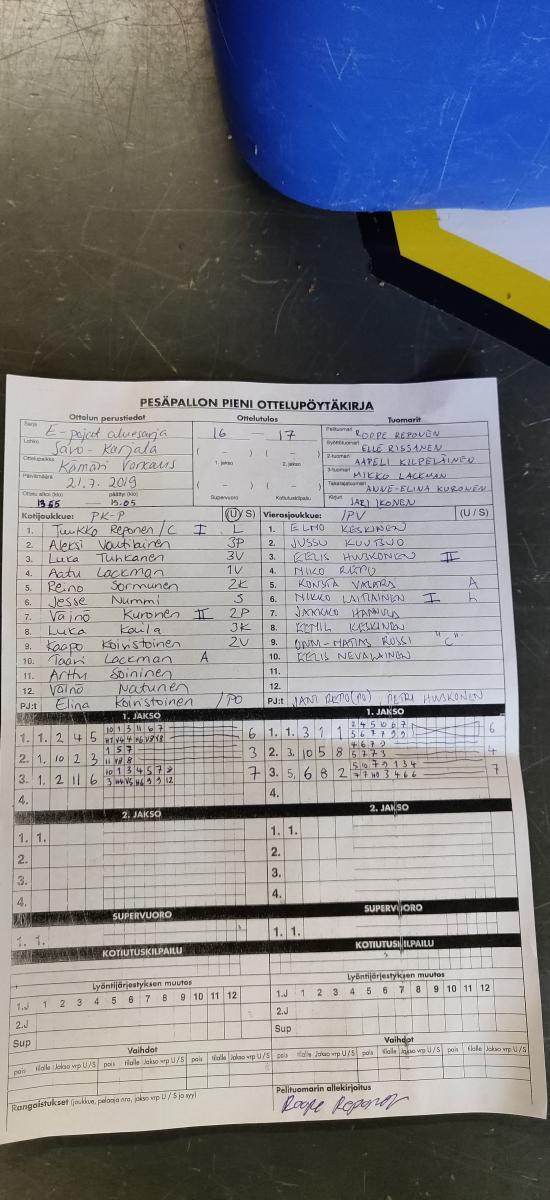 PESÄPALLON PIENI OTTELUPÖYTÄKIRJA
Ottelun perustiedot Ottelutulos Tuomarit
Sarja E-pojat aluesarja
Lohko Savo-Karjala
Ottelupaikka Kämäri Varkaus
Päivämäärä 21.7.2019
Ottelu alkoi (klo) päättyi (klo)
15.05
16 – 17
1. jakso 2. jakso
Supervuoro Kotiutuskilpailu
Pelituomari ROOPE REPONEN
Syöttötuomari ELLE RISSANEN
2-tuomari AAPELI KILPELÄINEN
3-tuomari MIKKO LACKMAN
Takarajatuomari ANNE-ELINA KURONEN
Kirjuri JARI IKONEN
Kotijoukkue: PK-P (U/S)
1. Tuukko Reponen/C I L
2. Aleksi Voutilainen 3P
3. Luka Tuhkanen 3V
4. Aatu Lackman 1V
5. Reino Sormunen 2K
6. Jesse Nummi S
7. Väinö Kuronen II 2P
8. Luka Kaila 3K
9. Kaapo Koivistoinen 2V
10. Taavi Lackman A
11. Arttu Soininen
12. Väinö Natunen
PJ:t Elina Koivistoinen /PO
Vierasjoukkue: JPV (U/S)
1. ELMO KESKINEN
2. JUSSU KUUTUO
3. EELIS HUSKONEN II
4. NIKO RIEPU
5. KONSTA VALARA A
6. MIKKO LAITIAINEN I L
7. JAAKKO HANNULA
8. EEMIL KESKINEN
9. ONNI-MATIAS RUSSI "C"
10. EELIS NEVALAINEN
11.
12.
PJ:t JANI RIEPO(PO) PETRI HUSKONEN
1. JAKSO 1. JAKSO
1. 1. 2 4 5 10 1 3 11 6 7 6
2. 1. 10 2 3 1 5 7 3
3. 1. 2 11 6 10 1 3 4 5 7 8 7
4.
1. 1. 3 1 1 2 4 5 10 6 7 6
2. 3. 10 5 8 4 6 7 9 4
3. 5. 6 8 2 5 10 7 9 3 4 7
4.
2. JAKSO 2. JAKSO
1. 1.
2.
3.
4.
1. 1.
2.
3.
4.
SUPERVUORO SUPERVUORO
1. 1. 1. 1.
KOTIUTUSKILPAILU KOTIUTUSKILPAILU
Lyöntijärjestyksen muutos Lyöntijärjestyksen muutos
1.J 1 2 3 4 5 6 7 8 9 10 11 12 1.J 1 2 3 4 5 6 7 8 9 10 11 12
2.J 2.J
Sup Sup
Vaihdot Vaihdot
pois tilalle Jakso vrp U/S pois tilalle Jakso vrp U/S pois tilalle Jakso vrp U/S pois tilalle Jakso vrp U/S
Rangaistukset (joukkue, pelaaja nro, jakso vrp U / S ja syy)
Pelituomarin allekirjoitus
Roope Reponen